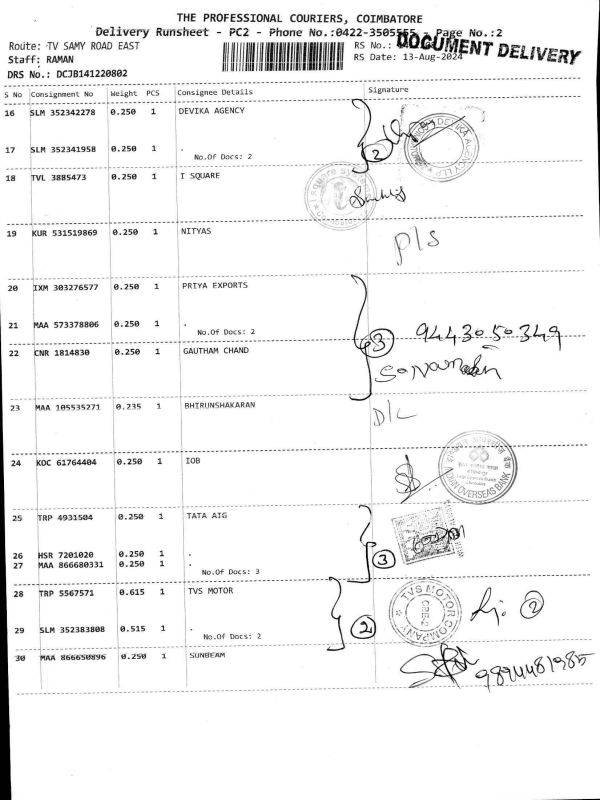 THE PROFESSIONAL COURIERS, COIMBATORE
Delivery Runsheet - PC2 - Phone No.:0422-3505555 - Page No.:2
Route: TV SAMY ROAD EAST RS No.: DOCUMENT DELIVERY
Staff: RAMAN RS Date: 13-Aug-2024
DRS No.: DCJB141220802
S No Consignment No Weight PCS Consignee Details Signature
16 SLM 352342278 0.250 1 DEVIKA AGENCY
17 SLM 352341958 0.250 1 .
No.Of Docs: 2 2
18 TVL 3885473 0.250 1 I SQUARE
19 KUR 531519869 0.250 1 NITYAS P/S
20 IXM 303276577 0.250 1 PRIYA EXPORTS
21 MAA 573378806 0.250 1 .
No.Of Docs: 2 3 9443050349
22 CNR 1814830 0.250 1 GAUTHAM CHAND
23 MAA 105535271 0.235 1 BHIRUNSHAKARAN D/L
24 KOC 61764404 0.250 1 IOB
INDIAN OVERSEAS BANK
25 TRP 4931504 0.250 1 TATA AIG
26 HSR 7201020 0.250 1 .
27 MAA 866680331 0.250 1 . 3
No.Of Docs: 3
28 TRP 5567571 0.615 1 TVS MOTOR TVS MOTOR COMPANY CBE-2 2
29 SLM 352383808 0.515 1 . 2
No.Of Docs: 2
30 MAA 866650896 0.250 1 SUNBEAM 9894481985